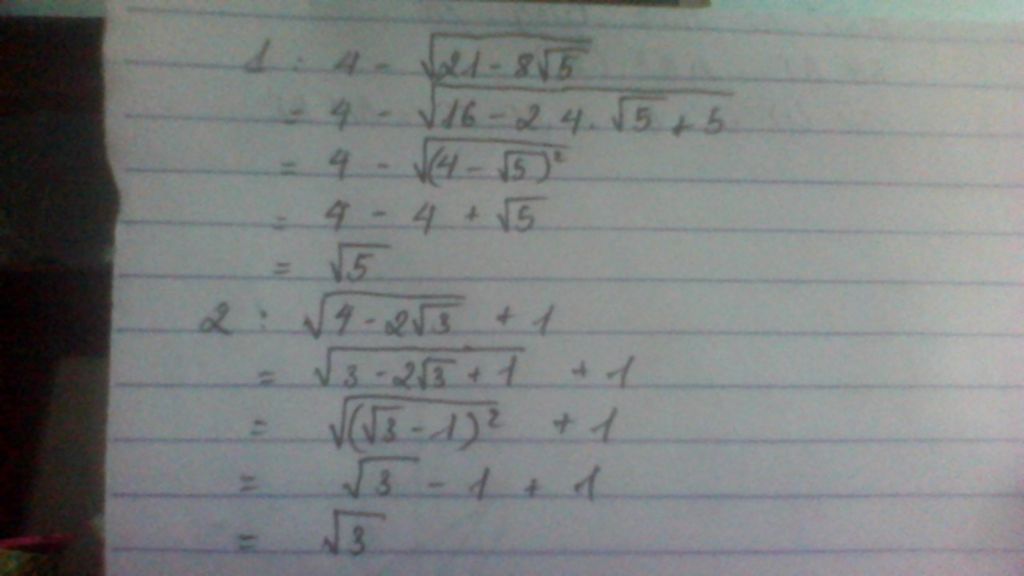 1 : 4 - √(21 - 8√5)
= 4 - √(16 - 2 4 . √5 + 5)
= 4 - √((4 - √5)²)
= 4 - 4 + √5
= √5
2 : √(4 - 2√3) + 1
= √(3 - 2√3 + 1) + 1
= √((√3 - 1)²) + 1
= √3 - 1 + 1
= √3